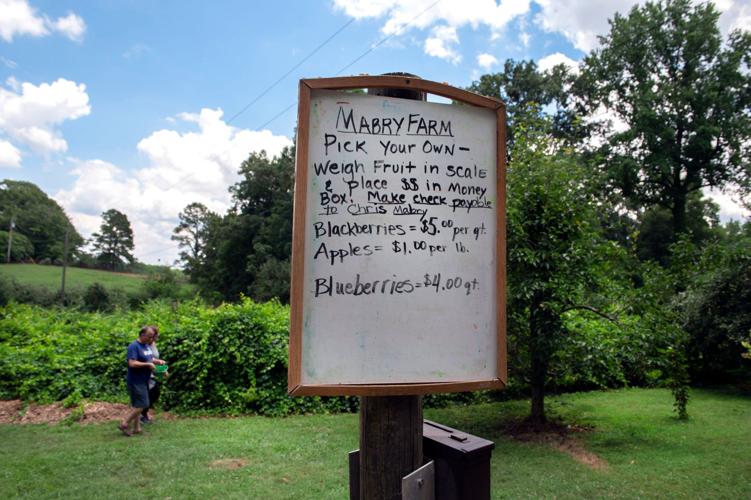 MABRY FARM
PICK YOUR OWN -
WEIGH FRUIT IN SCALE
& PLACE $$ IN MONEY
BOX! Make check payable
to Chris Mabry
Blackberries = $5.00 per qt.
Apples = $1.00 per lb.
Blueberries = $4.00 qt.